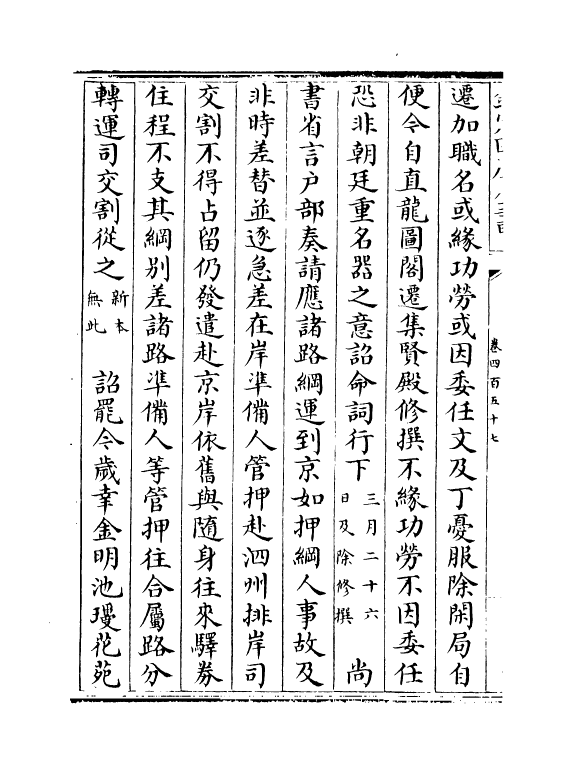 卷四百五十七
遷加職名或緣功勞或因委任文及丁憂服除閑局自
便令自直龍圖閣遷集賢殿修撰不緣功勞不因委任
恐非朝廷重名器之意詔命詞行下三月二十六日及除修撰 尚
書省言户部奏請應諸路綱運到京如押綱人事故及
非時差替並逐急差在岸凖備人管押赴泗州排岸司
交割不得占留仍發遣赴京岸依舊與隨身往來驛券
住程不支其綱别差諸路凖備人等管押往合屬路分
轉運司交割從之新本無此 詔罷今歳幸金明池瓊花苑